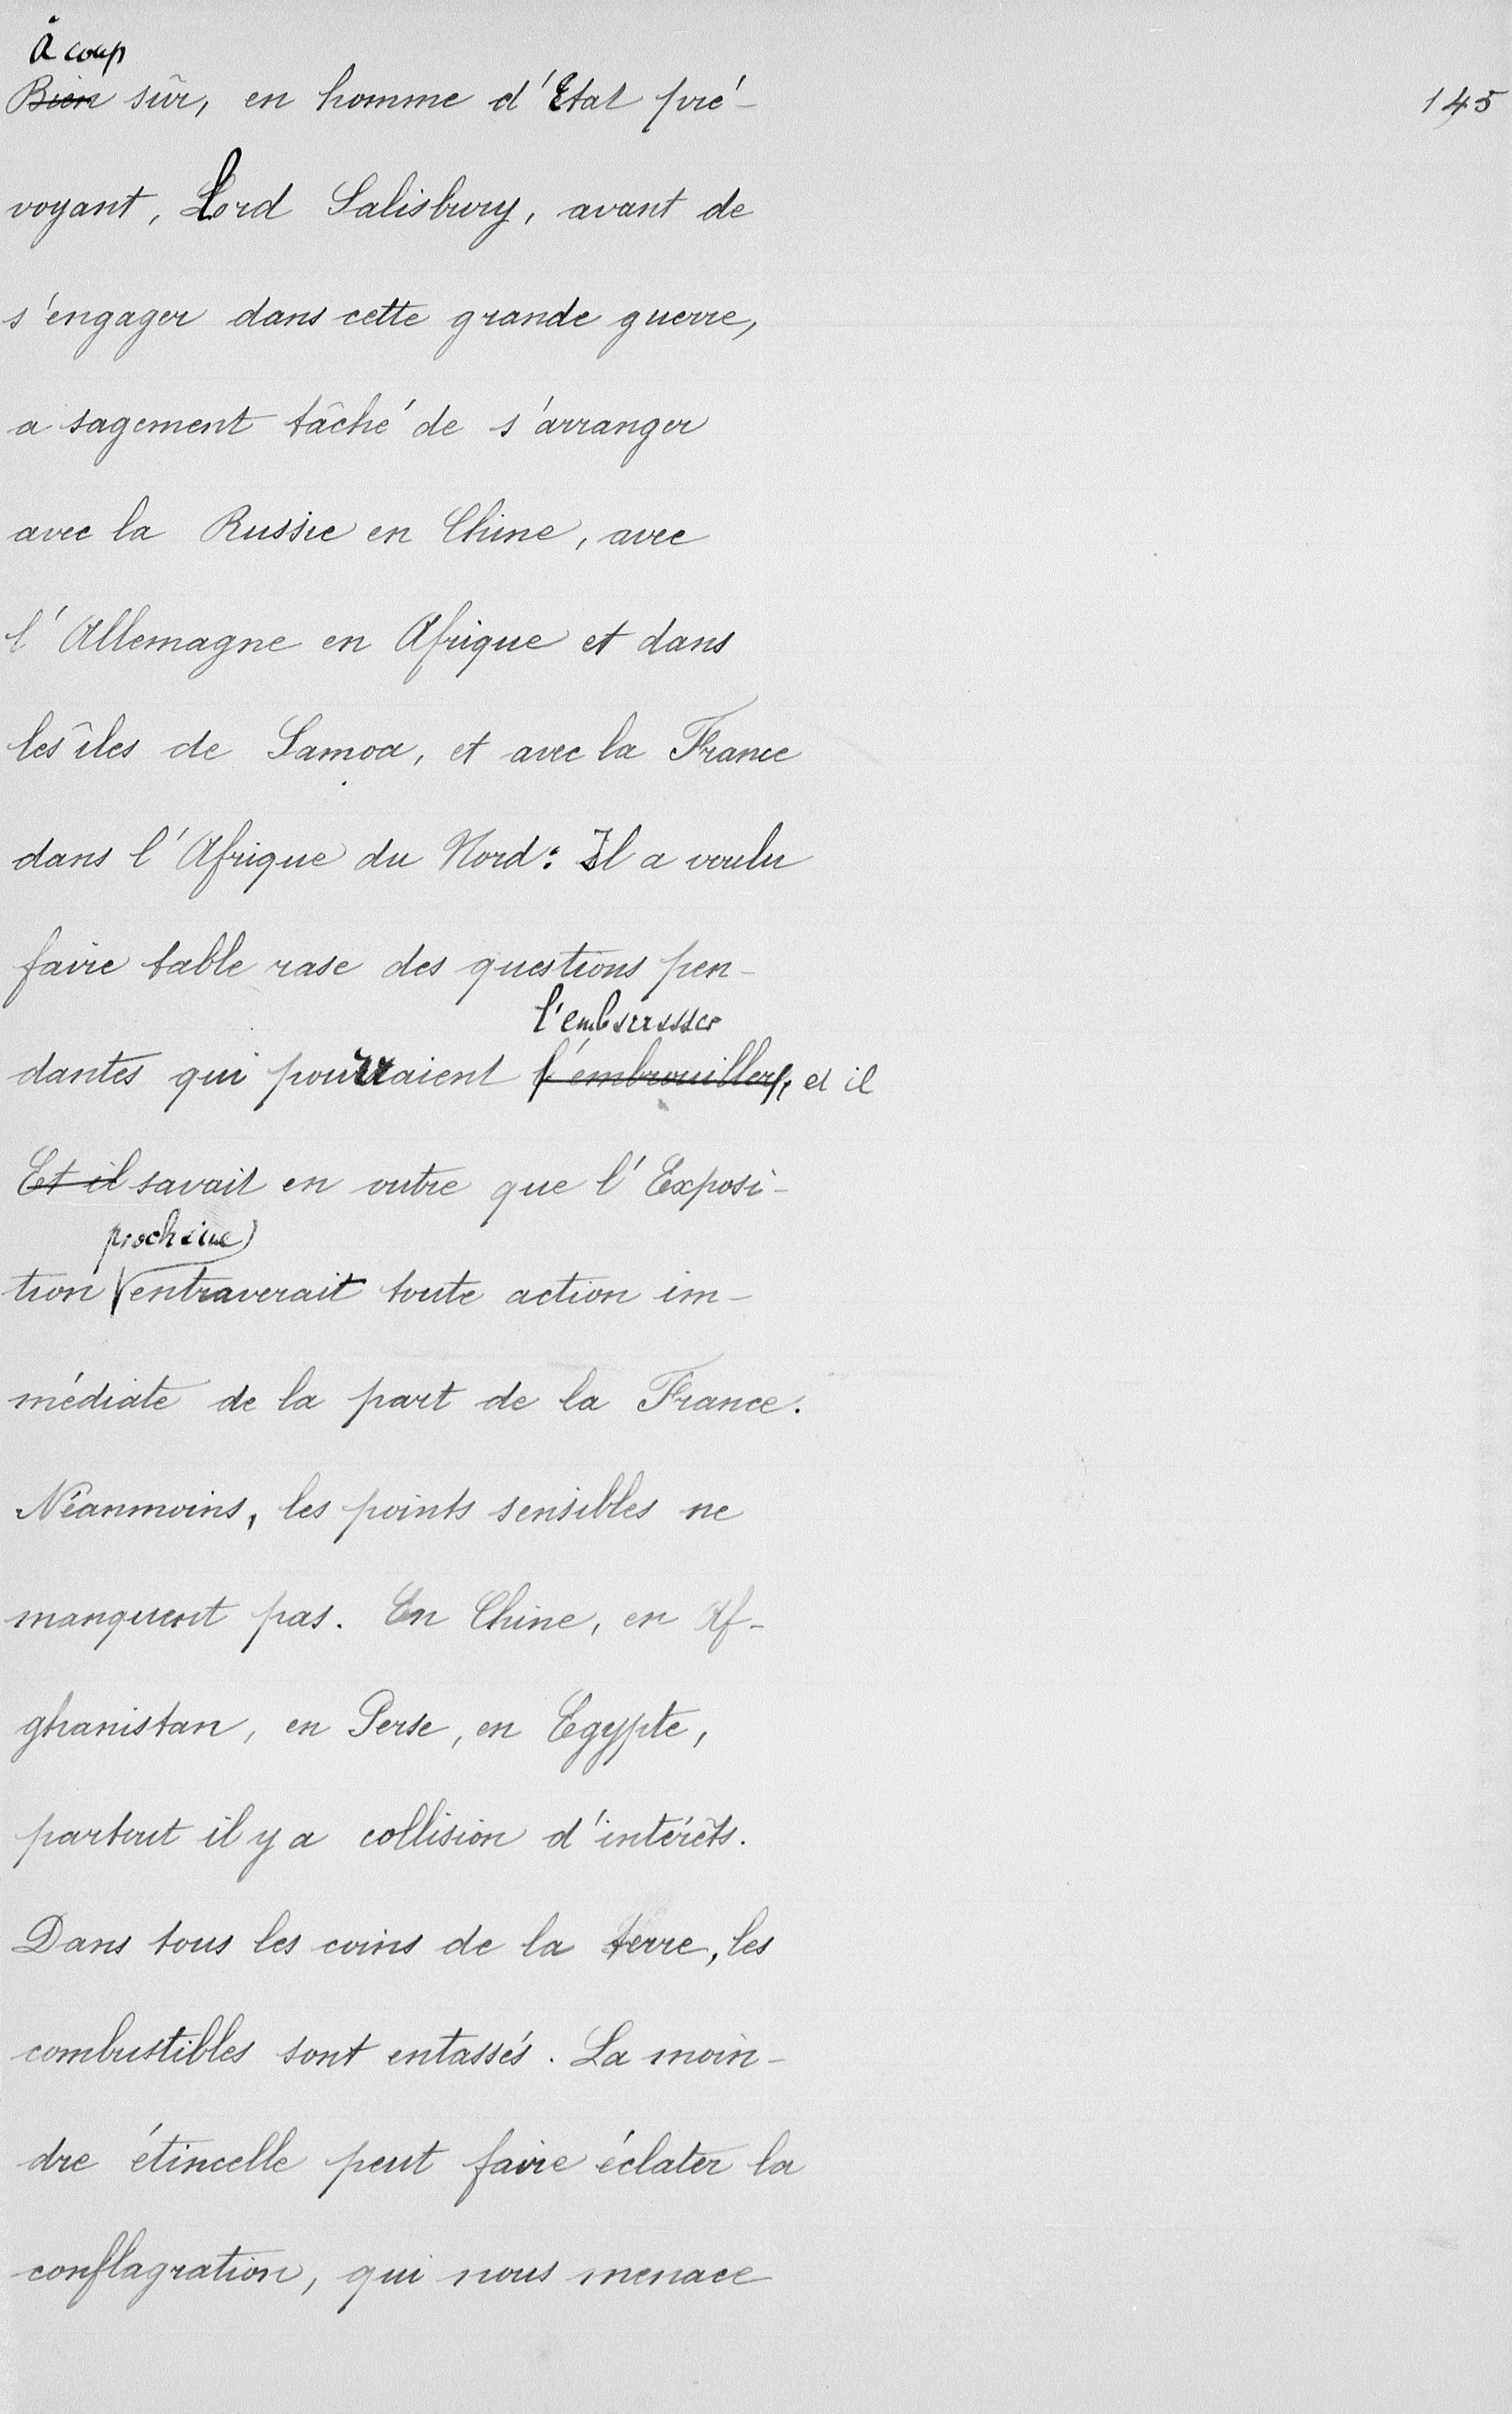 à coup
Bien sûr, en homme d'Etat pré-
145
voyant, Lord Salisbury, avant de
s'engager dans cette grande guerre,
a sagement tâché de s'arranger
avec la Russie en Chine, avec
l'Allemagne en Afrique et dans
les îles de Samoa, et avec la France
dans l'Afrique du Nord: Il a voulu
faire table rase des questions pen-
l'embarrasser
dantes qui pourraient l'embrouiller, et il
Et il savait en outre que l'Exposi-
prochaine
tion entraverait toute action im-
médiate de la part de la France.
Néanmoins, les points sensibles ne
manquent pas. En Chine, en Af-
ghanistan, en Perse, en Egypte,
partout il y a collision d'intérêts.
Dans tous les coins de la terre, les
combustibles sont entassés. La moin-
dre étincelle peut faire éclater la
conflagration, qui nous menace